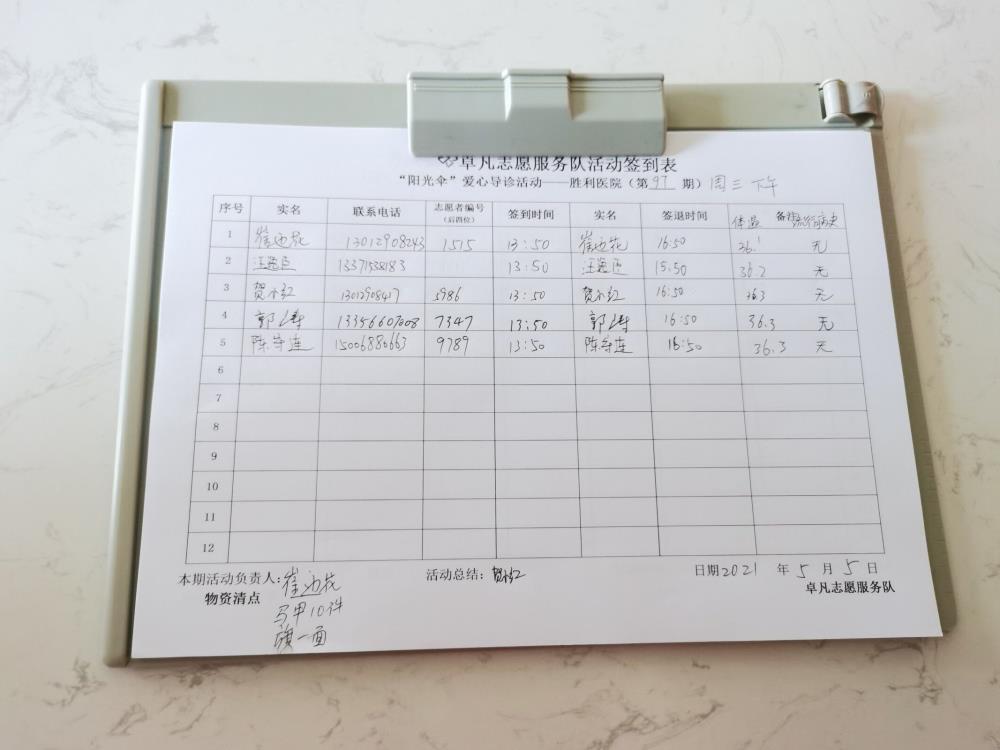 卓凡志愿服务队活动签到表
“阳光伞”爱心导诊活动——胜利医院（第97期）周三下午
序号 实名 联系电话 志愿者编号（后四位） 签到时间 实名 签退时间 体温 备注 流行病史
1 崔迎花 13012908243 1515 13:50 崔迎花 16:50 36.1 无
2 汪 13371538183 13:50 汪 15:50 36.2 无
3 贺小红 1301298417 5986 13:50 贺小红 16:50 36.3 无
4 郭 13356607008 7347 13:50 郭 16:50 36.3 无
5 陈守连 15006880663 9789 13:50 陈守连 16:50 36.3 无
6
7
8
9
10
11
12
本期活动负责人：崔迎花 活动总结：贺小红 日期2021年5月5日
物资清点 卓凡志愿服务队
马甲10件
旗一面